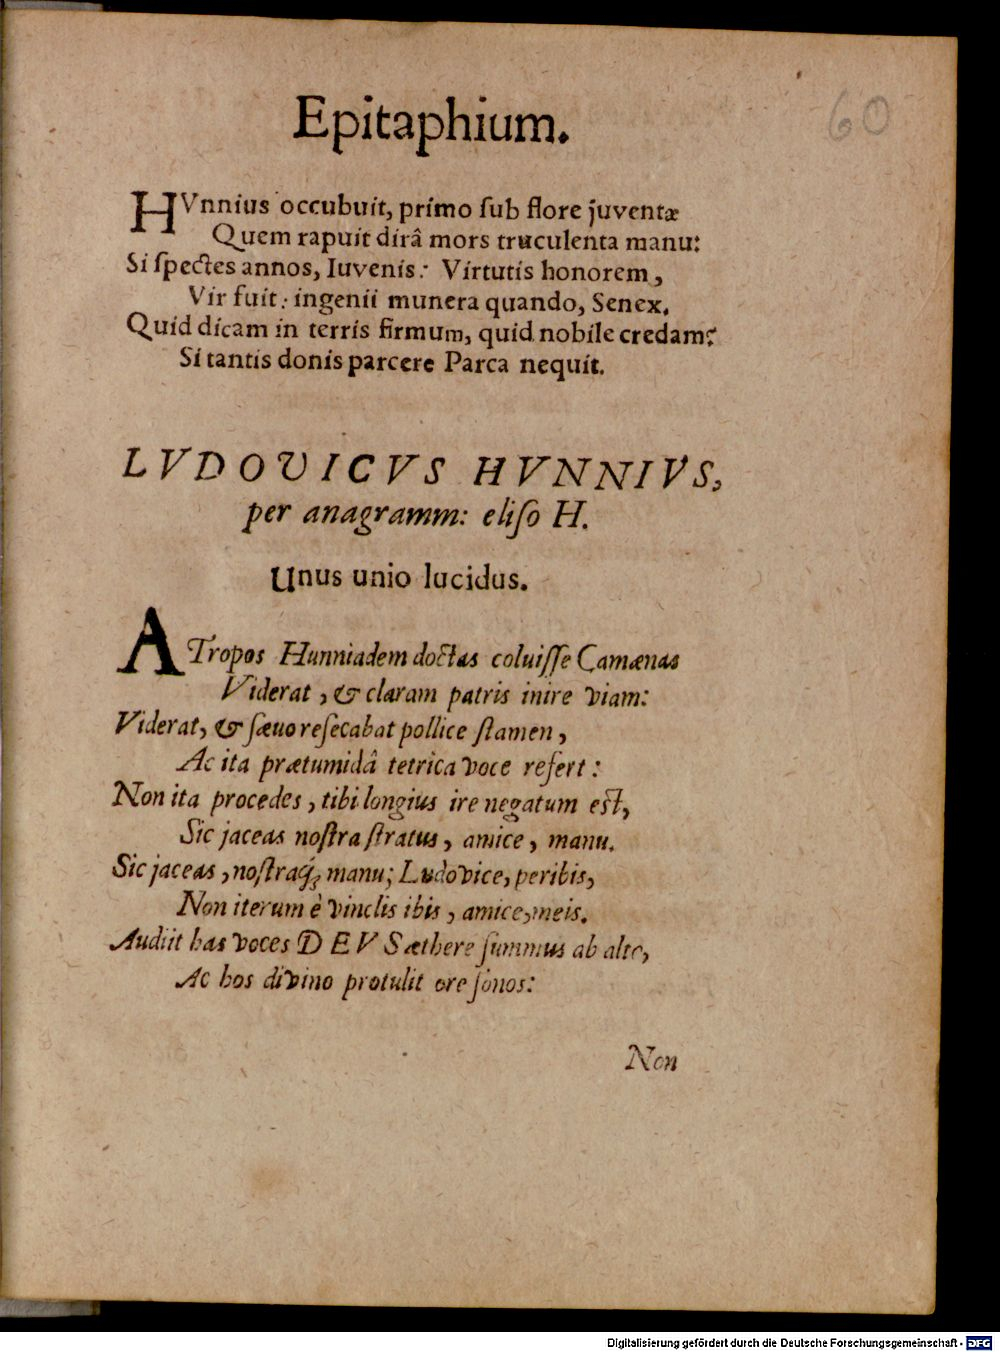 60
Epitaphium.
HVnnius occubuit, primo ſub flore juventæ
Quem rapuit dirâ mors truculenta manu:
Si ſpectes annos, Iuvenis: Virtutis honorem,
Vir fuit: ingenii munera quando, Senex.
Quid dicam in terris firmum, quid nobile credam?
Si tantis donis parcere Parca nequit.
LVDOVICVS HVNNIVS,
per anagramm: eliſo H.
Unus unio lucidus.
ATropos Hunniadem doctas coluiſſe Camænas
Viderat, & claram patris inire viam:
Viderat, & ſævo reſecabat pollice ſtamen,
Ac ita prætumidâ tetrica voce refert:
Non ita procedes, tibi longius ire negatum eſt,
Sic jaceas noſtra ſtratus, amice, manu.
Sic jaceas, noſtraq́; manu; Ludovice, peribis,
Non iterum è vinclis ibis, amice, meis.
Audiit has voces DEVS æthere ſummus ab alto,
Ac hos divino protulit ore ſonos:
Non
Digitalisierung gefördert durch die Deutsche Forschungsgemeinschaft - DFG